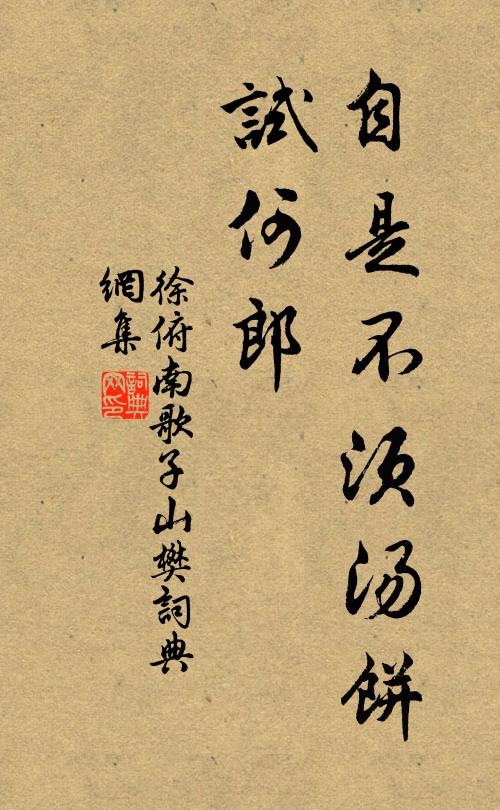 自是不須湯餅
試何郎
徐俯南歌子山樊詞典
網集
詞典
網印